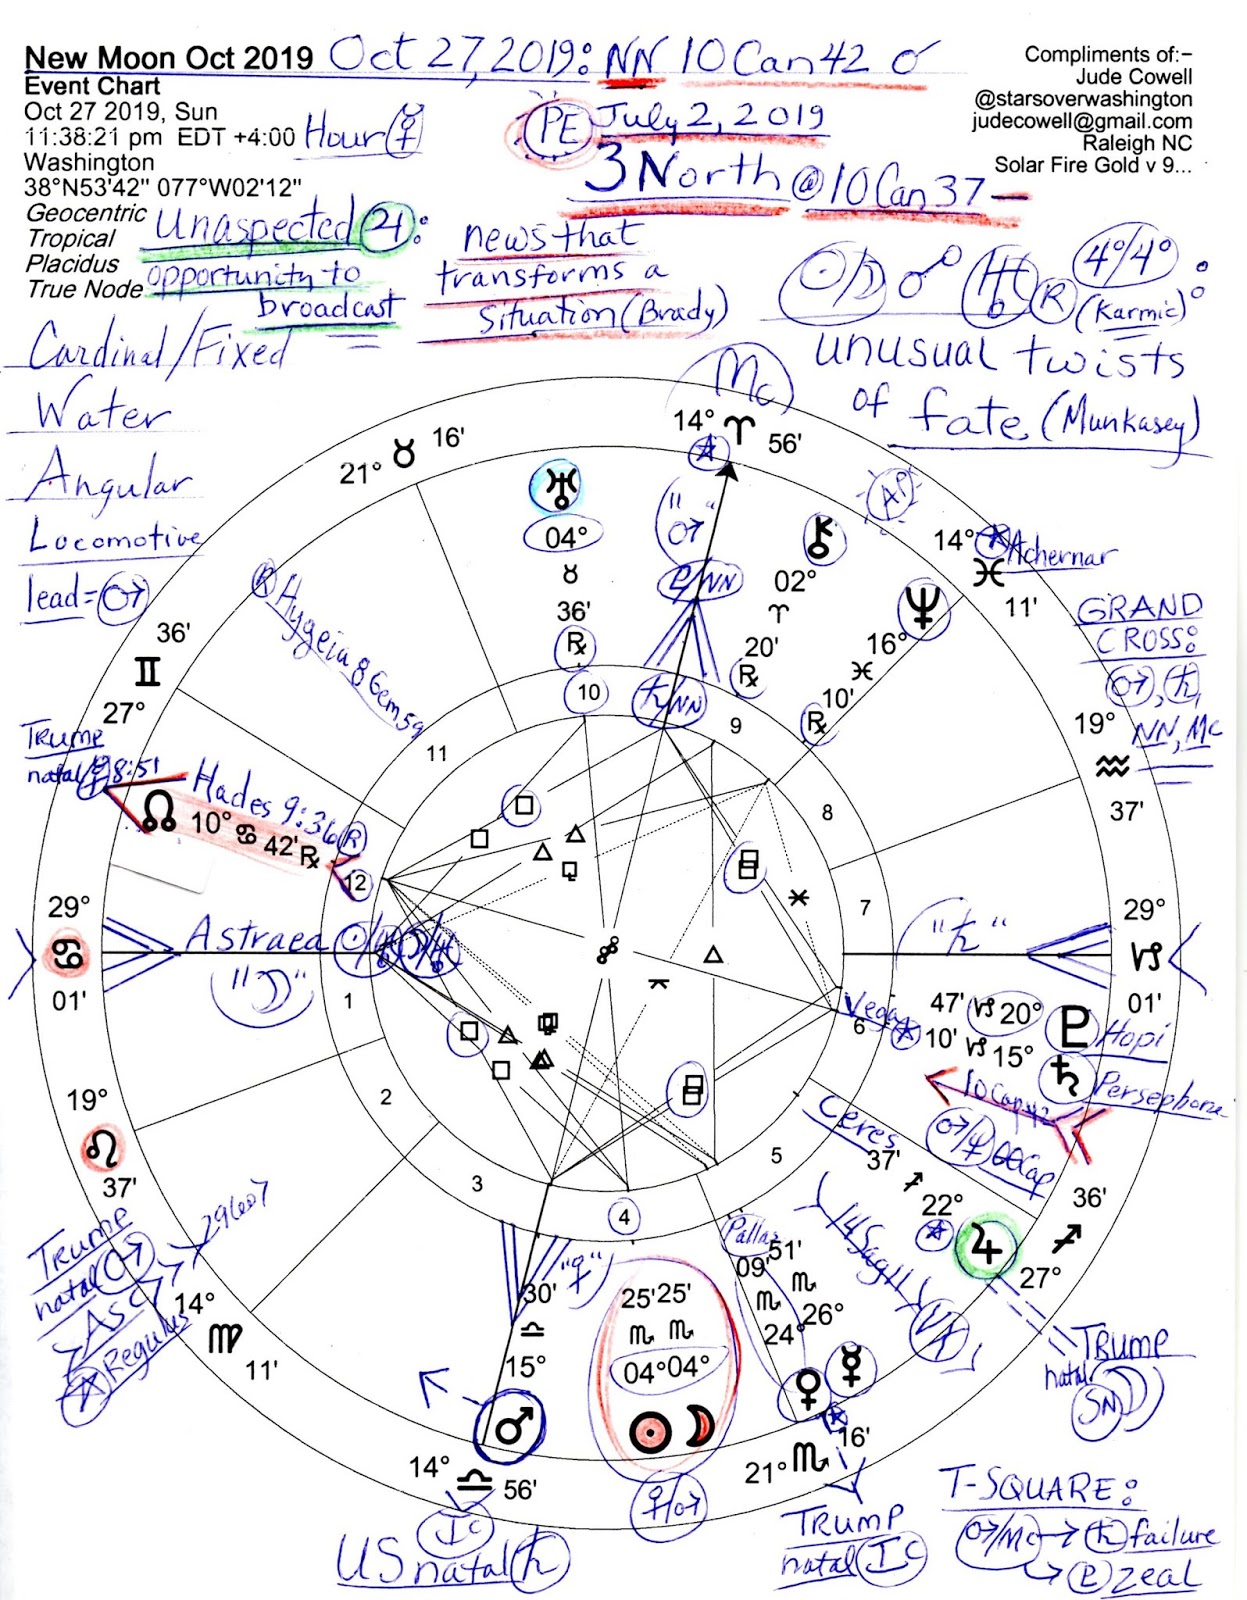 New Moon Oct 2019 Oct 27, 2019: NN 10 Can 42 ☌
Event Chart
Oct 27 2019, Sun
11:38:21 pm EDT +4:00 Hour ☿
Washington
38°N53'42" 077°W02'12"
Geocentric
Tropical
Placidus
True Node
Compliments of:-
Jude Cowell
@starsoverwashington
judecowell@gmail.com
Raleigh NC
Solar Fire Gold v 9...
PE July 2, 2019
3 North @ 10 Can 37 –
Unaspected ♃:
opportunity to
broadcast
news that
transforms a
situation (Brady)
☉ ☽ ☍ ♅ R 4°/4° :
(Karmic)
unusual twists
of fate (Munkasey)
Cardinal/Fixed
Water
Angular
Locomotive
lead = ♂
Mc
14° ♈ 56'
"♂"
♇/NN
♄/NN
21° ♉ 16'
♅
04°
♉
36'
℞
AP
⚷
02°
♈
20'
℞
14° ♓ 11'
Achernar
♆
16°
♓
10'
℞
GRAND
CROSS:
♂, ♄,
NN, Mc
19° ♒ 37'
36'
♊
27°
R Hygeia 8 Gem 59
Trump
natal ☿ 8:51
Hades 9:36 R
☊ 10° ♋ 42' ℞
29° ♋ 01'
Astraea
"☽"
"♄"
29° ♑ 01'
Vega
47' ♑ 20° ♇ Hopi
10' ♑ 15° ♄ Persephone
10 Cap 42
♂/♆ 00 Cap
Ceres
37' ♐ 22° ♃
36' ♐ 27°
14 Sag 11 Vx
Trump
natal SN ☽
19° ♌ 37'
29Leo7
Trump
natal ♂
Asc
Regulus
14° ♍ 11'
10
9
11
8
12
7
1
6
2
5
3
4
"♀"
30'
♎
15°
♂
25' 25'
♏ ♏
04° 04°
☉ ☽
♀/♂
Pallas
09' ♏ 24° ♀
51' ♏ 26° ☿
21° ♏ 16'
14° ♎ 56'
Ic
US natal ♄
Trump
natal Ic
T-SQUARE:
♂/Mc → ♄ failure
→ ♇ zeal